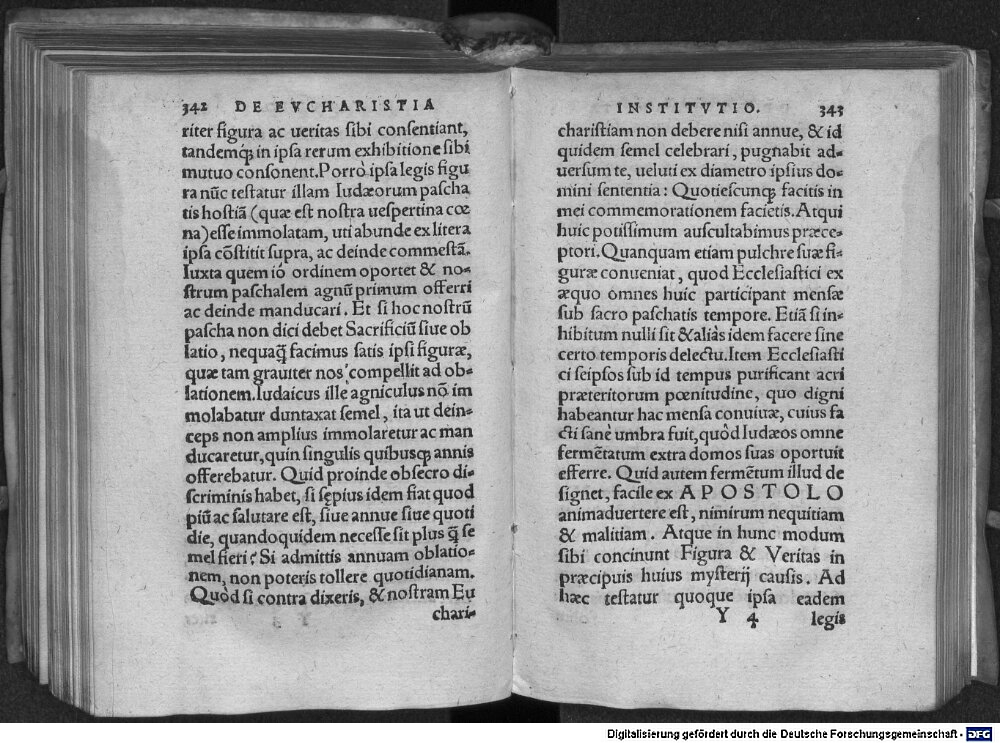 342 DE EVCHARISTIA
riter figura ac ueritas sibi consentiant,
tandemq́; in ipsa rerum exhibitione sibi
mutuo consonent. Porrò ipsa legis figu
ra nũc testatur illam Iudæorum pascha
tis hostiã (quæ est nostra uespertina cœ
na) esse immolatam, uti abunde ex litera
ipsa cõstitit supra, ac deinde commestã.
Iuxta quem iõ ordinem oportet & no-
strum paschalem agnũ primum offerri
ac deinde manducari. Et si hoc nostrũ
pascha non dici debet Sacrificiũ siue ob
latio, nequaq̃ facimus satis ipsi figuræ,
quæ tam grauiter nos compellit ad ob-
lationem. Iudaicus ille agniculus nõ im
molabatur duntaxat semel, ita ut dein-
ceps non amplius immolaretur ac man
ducaretur, quin singulis quibusq; annis
offerebatur. Quid proinde obsecro di-
scriminis habet, si sępius idem fiat quod
piũ ac salutare est, siue annue siue quoti
die, quandoquidem necesse sit plus q̃ se
mel fieri? Si admittis annuam oblatio-
nem, non poteris tollere quotidianam.
Quòd si contra dixeris, & nostram Eu
chari-
INSTITVTIO. 343
charistiam non debere nisi annue, & id
quidem semel celebrari, pugnabit ad-
uersum te, ueluti ex diametro ipsius do-
mini sententia: Quotiescunq; facitis in
mei commemorationem facietis. Atqui
huic potissimum auscultabimus præce-
ptori. Quanquam etiam pulchre suæ fi-
guræ conueniat, quod Ecclesiastici ex
æquo omnes huic participant mensæ
sub sacro paschatis tempore. Etiã si in-
hibitum nulli sit & aliàs idem facere sine
certo temporis delectu. Item Ecclesiasti
ci seipsos sub id tempus purificant acri
præteritorum pœnitudine, quo digni
habeantur hac mensa conuiuæ, cuius fa
cti sanè umbra fuit, quòd Iudæos omne
fermẽtatum extra domos suas oportuit
efferre. Quid autem fermẽtum illud de
signet, facile ex APOSTOLO
animaduertere est, nimirum nequitiam
& malitiam. Atque in hunc modum
sibi concinunt Figura & Veritas in
præcipuis huius mysterij causis. Ad
hæc testatur quoque ipsa eadem
Y 4 legis
Digitalisierung gefördert durch die Deutsche Forschungsgemeinschaft - DFG